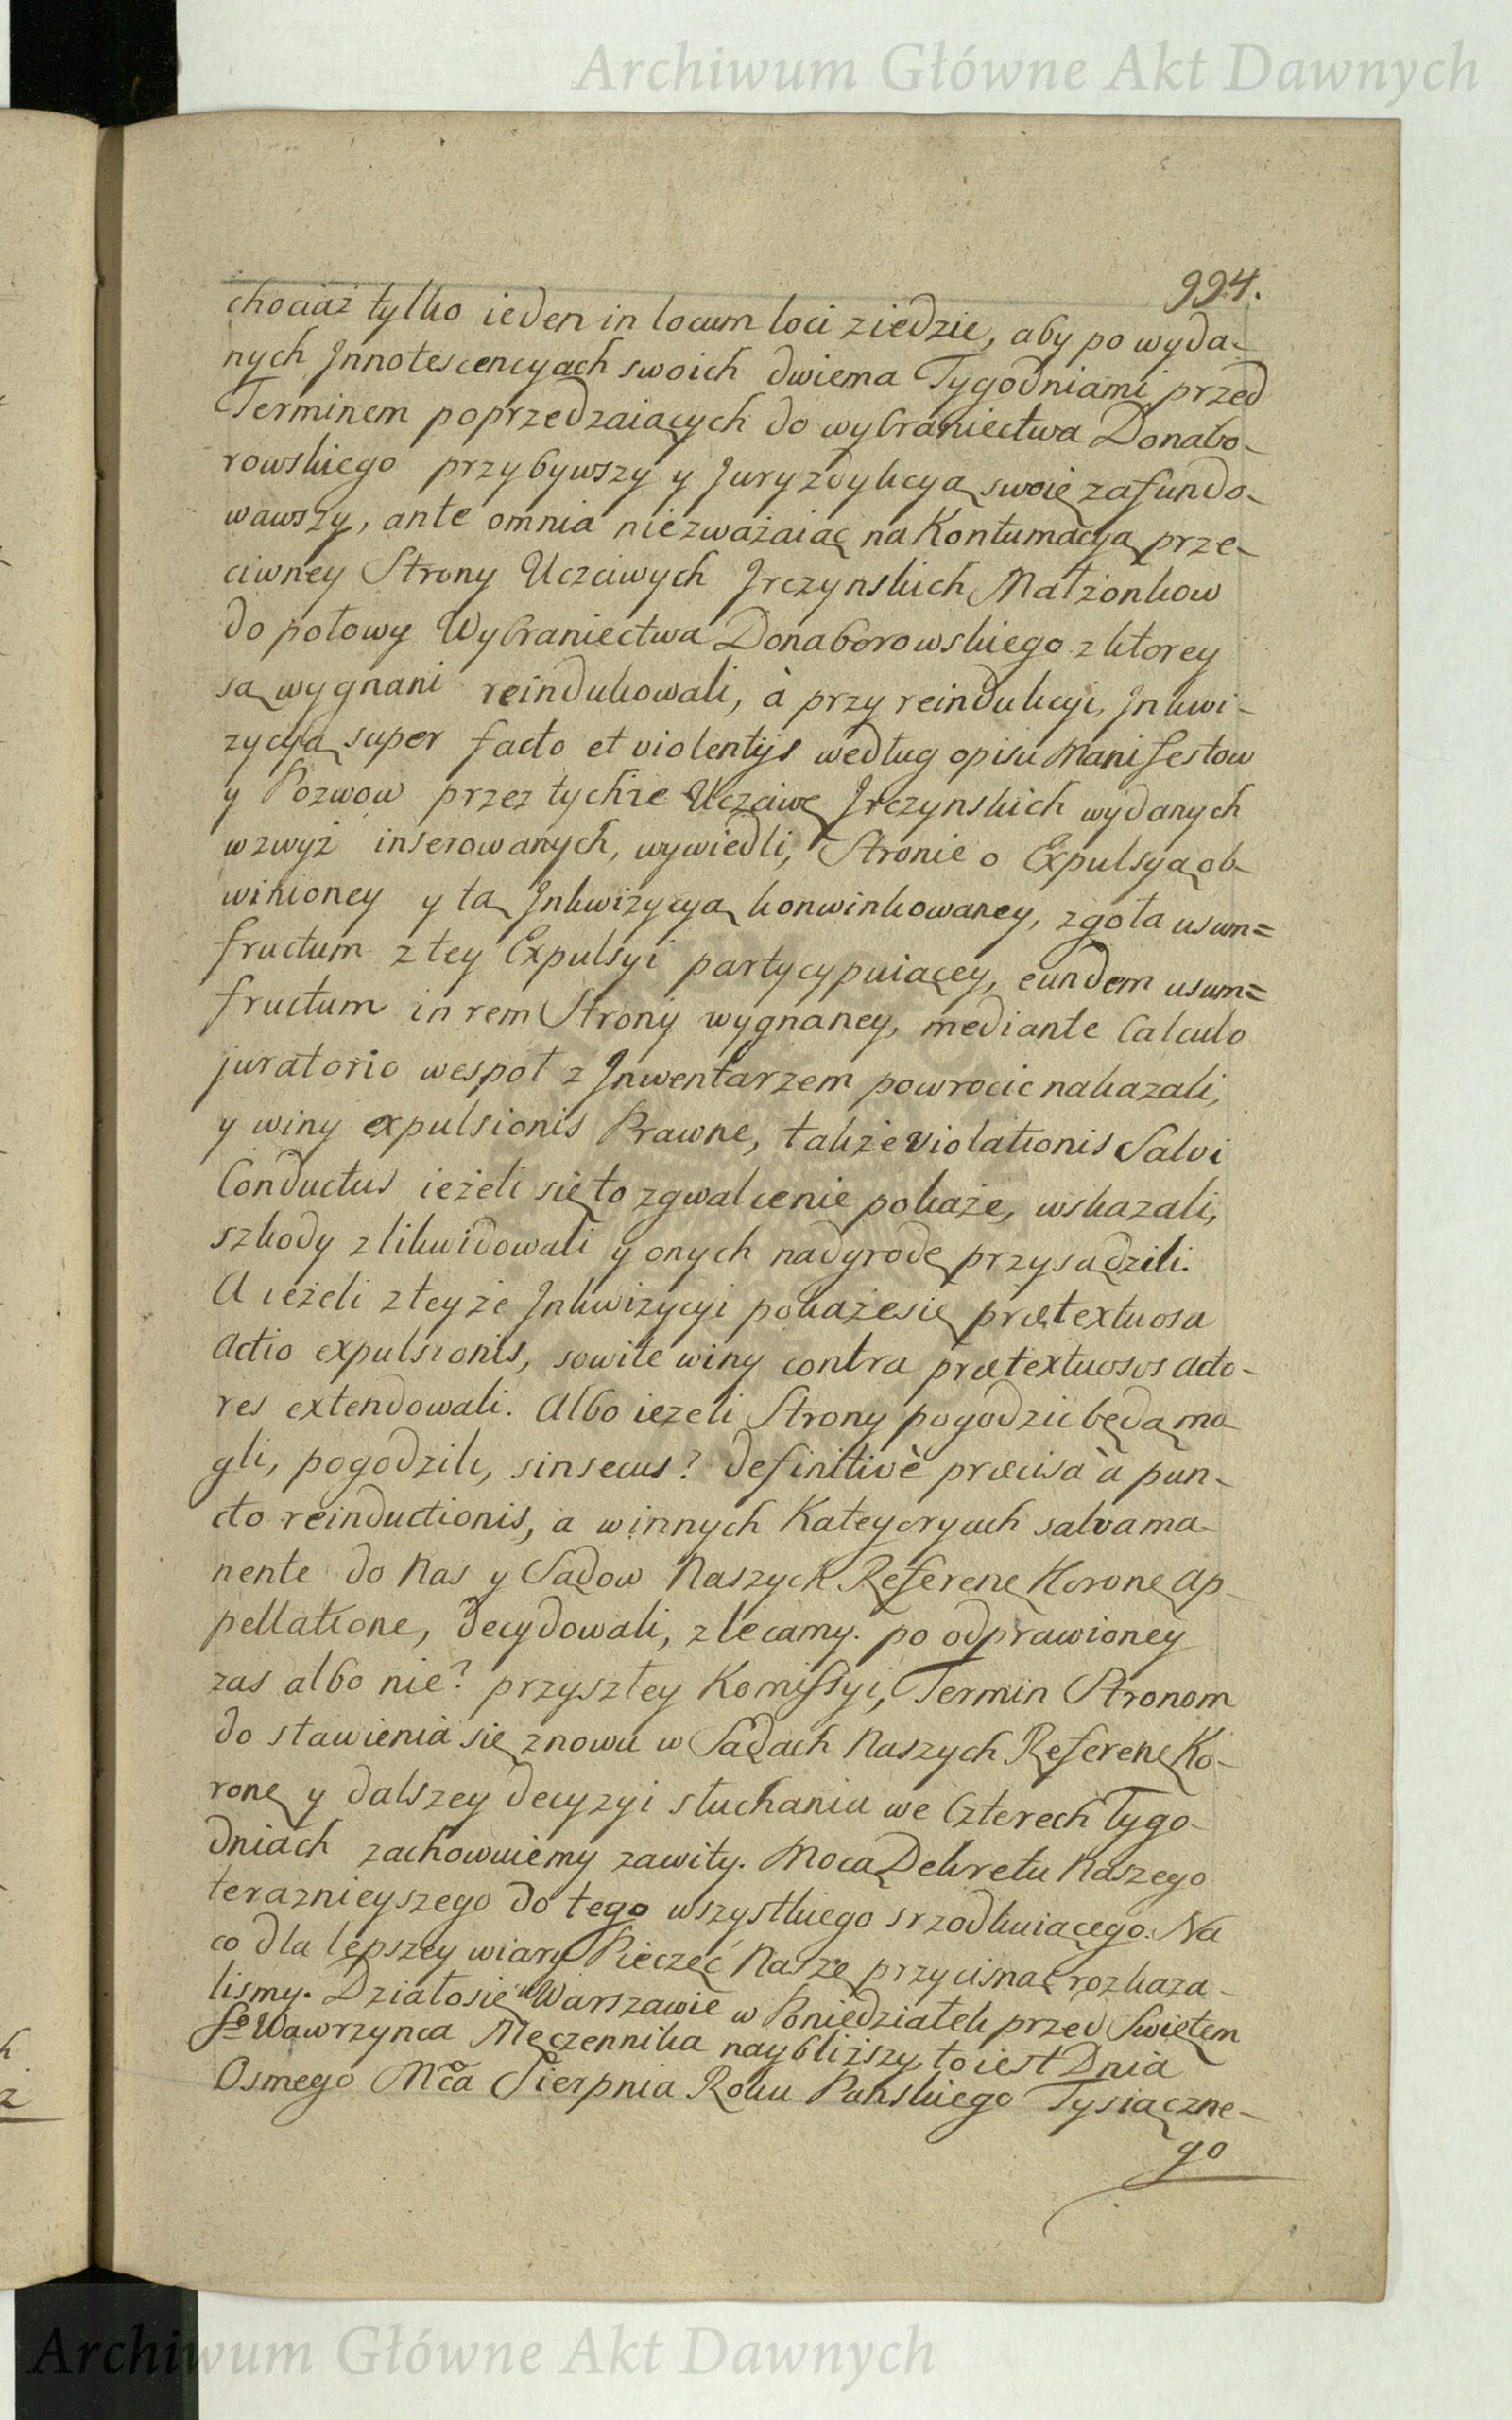 Archiwum Główne Akt Dawnych
994.
chociaż tylko ieden in locum loci ziedzie, aby po wyda-
nych Innotescencyach swoich dwiema Tygodniami przed
Terminem poprzedzaiących do wybraniectwa Donabo-
rowskiego przybywszy y Juryzdykcyą swoię zafundo-
wawszy, ante omnia niezważaiąc na Kontumacyą prze-
ciwney Strony Uczciwych Jrczynskich Małżonkow
do połowy Wybraniectwa Donaborowskiego z ktorey
są wygnani reindukowali, à przy reindukcji, Inkwi-
zycyą super facto et violentijs według opisu Manifestow
y Pozwow przez tychże Uczciwe Jrczynskich wydanych
wzwyż inserowanych, wywiedli, Stronie o Expulsyą ob-
winioney y tą Inkwizycyą konwinkowaney, zgoła usum=
fructum z tey Expulsyi partycypuiącey, eundem usum=
fructum in rem Strony wygnaney, mediante Calculo
juratorio wespoł z Inwentarzem powrocic nakazali,
y winy expulsionis Prawne, także violationis Salvi
Conductus ieżeli się to zgwalcenie pokaże, wskazali,
szkody zlikwidowali y onych nadgrodę przysądzili.
A ieżeli z teyże Inkwizycyi pokaże się prætextuosa
Actio expulsionis, sowite winy contra prætextuosos Acto-
res extendowali. Albo ieżeli Strony pogodzic będą mo-
gli, pogodzili, sinsecus? definitivè præcisa à pun-
cto reinductionis, a w innych Kategoryach salva ma-
nente do Nas y Sądow Naszych Referene Korone Ap-
pellatione, decydowali, zlecamy. po odprawioney
zas albo nie? przyszłey Komissyi, Termin Stronom
do stawienia się znowu w Sądach Naszych Referene Ko-
rone y dalszey decyzyi słuchania we Czterech Tygo-
dniach zachowuiemy zawity. Mocą Dekretu Naszego
teraznieyszego do tego wszystkiego srzodkuiącego. Na
co dla lepszey wiary Pieczęć Naszę przycisnąć rozkaza-
lismy. Działo się w Warszawie w Poniedziałek przed Swiętem
Sgo Wawrzynca Męczennika naybliższy, to iest Dnia
Osmego Mca Sierpnia Roku Panskiego Tysiączne-
go
Archiwum Główne Akt Dawnych